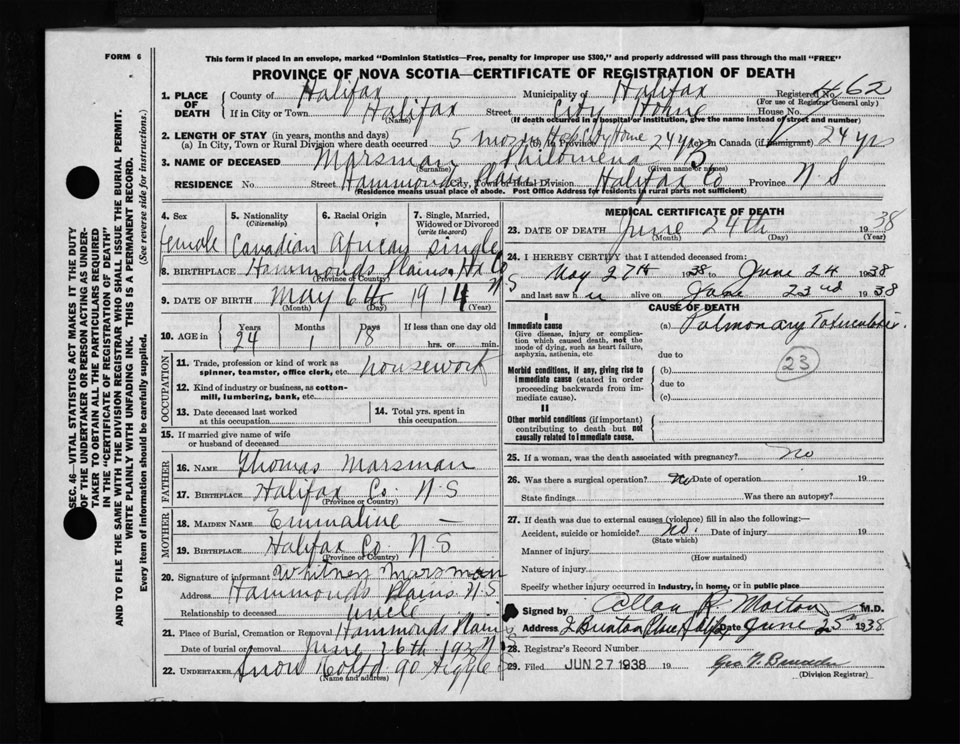 FORM 6
This form if placed in an envelope, marked "Dominion Statistics—Free, penalty for improper use $300," and properly addressed will pass through the mail "FREE"
PROVINCE OF NOVA SCOTIA—CERTIFICATE OF REGISTRATION OF DEATH
1. PLACE OF DEATH
County of Halifax Municipality of Halifax Registered No. 462
(For use of Registrar General only)
If in City or Town Halifax Street City Home House No.
(Name) (If death occurred in a hospital or institution, give the name instead of street and number)
2. LENGTH OF STAY (in years, months and days)
(a) In City, Town or Rural Division where death occurred 5 mos in City Home (b) In Province 24 yrs (c) In Canada (if immigrant) 24 yrs
3. NAME OF DECEASED Marsman Philomena B
(Surname) (Given name or names)
RESIDENCE No. Street Hammonds Plains City, Town or Rural Division Halifax Co Province N S
(Residence means usual place of abode. Post Office Address for residents in rural parts not sufficient)
4. Sex female
5. Nationality (Citizenship) Canadian
6. Racial Origin African
7. Single, Married, Widowed or Divorced (write the word) single
8. BIRTHPLACE Hammonds Plains Hx Co N S
(Province or Country)
9. DATE OF BIRTH May 6th 1914
(Month) (Day) (Year)
10. AGE in Years 24 Months 1 Days 18 If less than one day old hrs. or min.
OCCUPATION
11. Trade, profession or kind of work as spinner, teamster, office clerk, etc. housework
12. Kind of industry or business, as cotton-mill, lumbering, bank, etc.
13. Date deceased last worked at this occupation
14. Total yrs. spent in this occupation
15. If married give name of wife or husband of deceased
FATHER
16. NAME Thomas Marsman
17. BIRTHPLACE Halifax Co. N S
(Province or Country)
MOTHER
18. MAIDEN NAME Emmaline —
19. BIRTHPLACE Halifax Co N S
(Province or Country)
20. Signature of informant Whitney Marsman
Address Hammonds Plains N.S
Relationship to deceased uncle
21. Place of Burial, Cremation or Removal Hammonds Plains
Date of burial or removal June 26th 193
22. UNDERTAKER Snow
(Name and address)
MEDICAL CERTIFICATE OF DEATH
23. DATE OF DEATH June 24th 1938
(Month) (Day) (Year)
24. I HEREBY CERTIFY that I attended deceased from:
May 27th 1938 to June 24 1938
and last saw h er alive on June 23rd 1938
CAUSE OF DEATH
I
Immediate cause
Give disease, injury or complication which caused death, not the mode of dying, such as heart failure, asphyxia, asthenia, etc
(a) Pulmonary Tuberculosis.
due to
23
Morbid conditions, if any, giving rise to immediate cause (stated in order proceeding backwards from immediate cause).
(b)
due to
(c)
II
Other morbid conditions (if important) contributing to death but not causally related to immediate cause.
25. If a woman, was the death associated with pregnancy? no
26. Was there a surgical operation? no Date of operation 19
State findings Was there an autopsy?
27. If death was due to external causes (violence) fill in also the following:—
Accident, suicide or homicide? no. Date of injury 19
(State which)
Manner of injury
(How sustained)
Nature of injury
Specify whether injury occurred in industry, in home, or in public place
Signed by Allan R. Morton M.D.
Address Brenton Place Halifax Date June 25th 1938
28. Registrar's Record Number
29. Filed JUN 27 1938 19
(Division Registrar)
SEC. 46—VITAL STATISTICS ACT MAKES IT THE DUTY
OF THE UNDERTAKER OR PERSON ACTING AS UNDERTAKER TO OBTAIN ALL THE PARTICULARS REQUIRED
IN THE "CERTIFICATE OF REGISTRATION OF DEATH"
AND TO FILE THE SAME WITH THE DIVISION REGISTRAR WHO SHALL ISSUE THE BURIAL PERMIT.
WRITE PLAINLY WITH UNFADING INK. THIS IS A PERMANENT RECORD.
Every item of information should be carefully supplied. (See reverse side for instructions.)